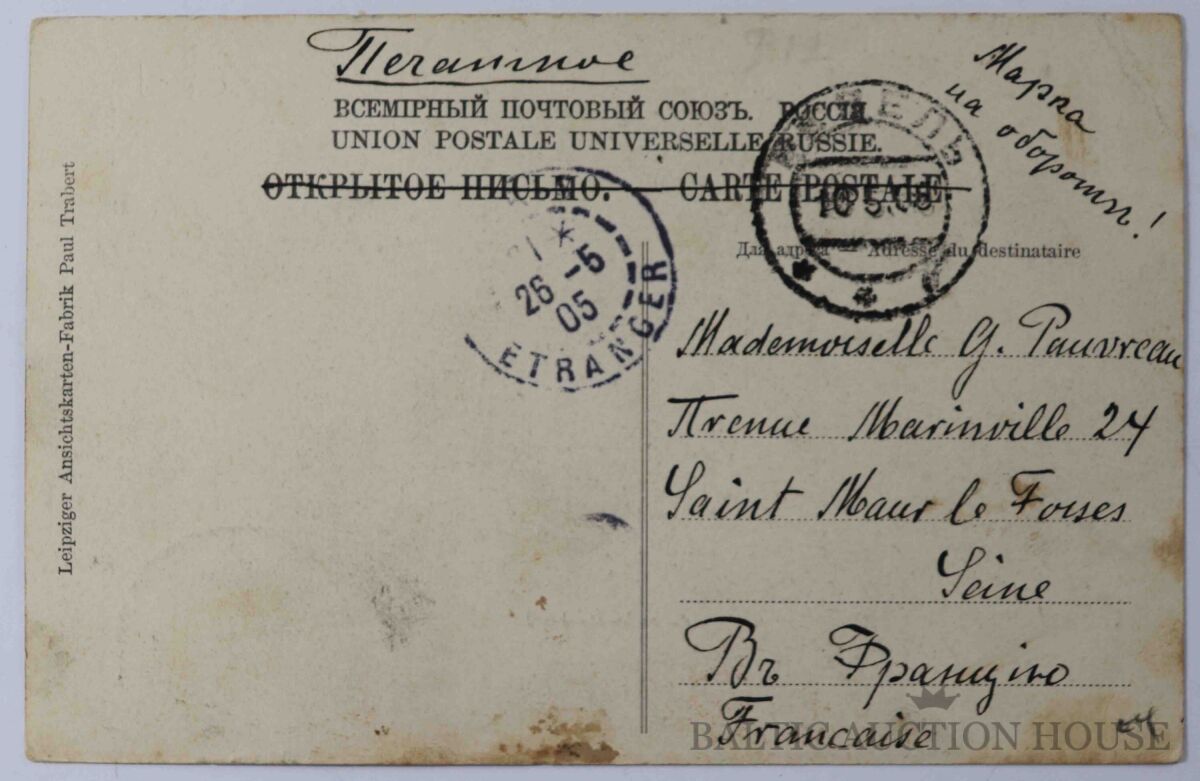 Печатное
Марка
на оборотѣ!
ВСЕМІРНЫЙ ПОЧТОВЫЙ СОЮЗЪ. РОССІЯ.
UNION POSTALE UNIVERSELLE RUSSIE.
ОТКРЫТОЕ ПИСЬМО. — CARTE POSTALE.
Для адреса — Adresse du destinataire
10 5.05
26 -5
05
ETRANGER
Mademoiselle G. Pauvreau
Avenue Marinville 24
Saint Maur le Fosses
Seine
Въ Францію
Francaise
Leipziger Ansichtskarten-Fabrik Paul Trabert
BALTIC AUCTION HOUSE